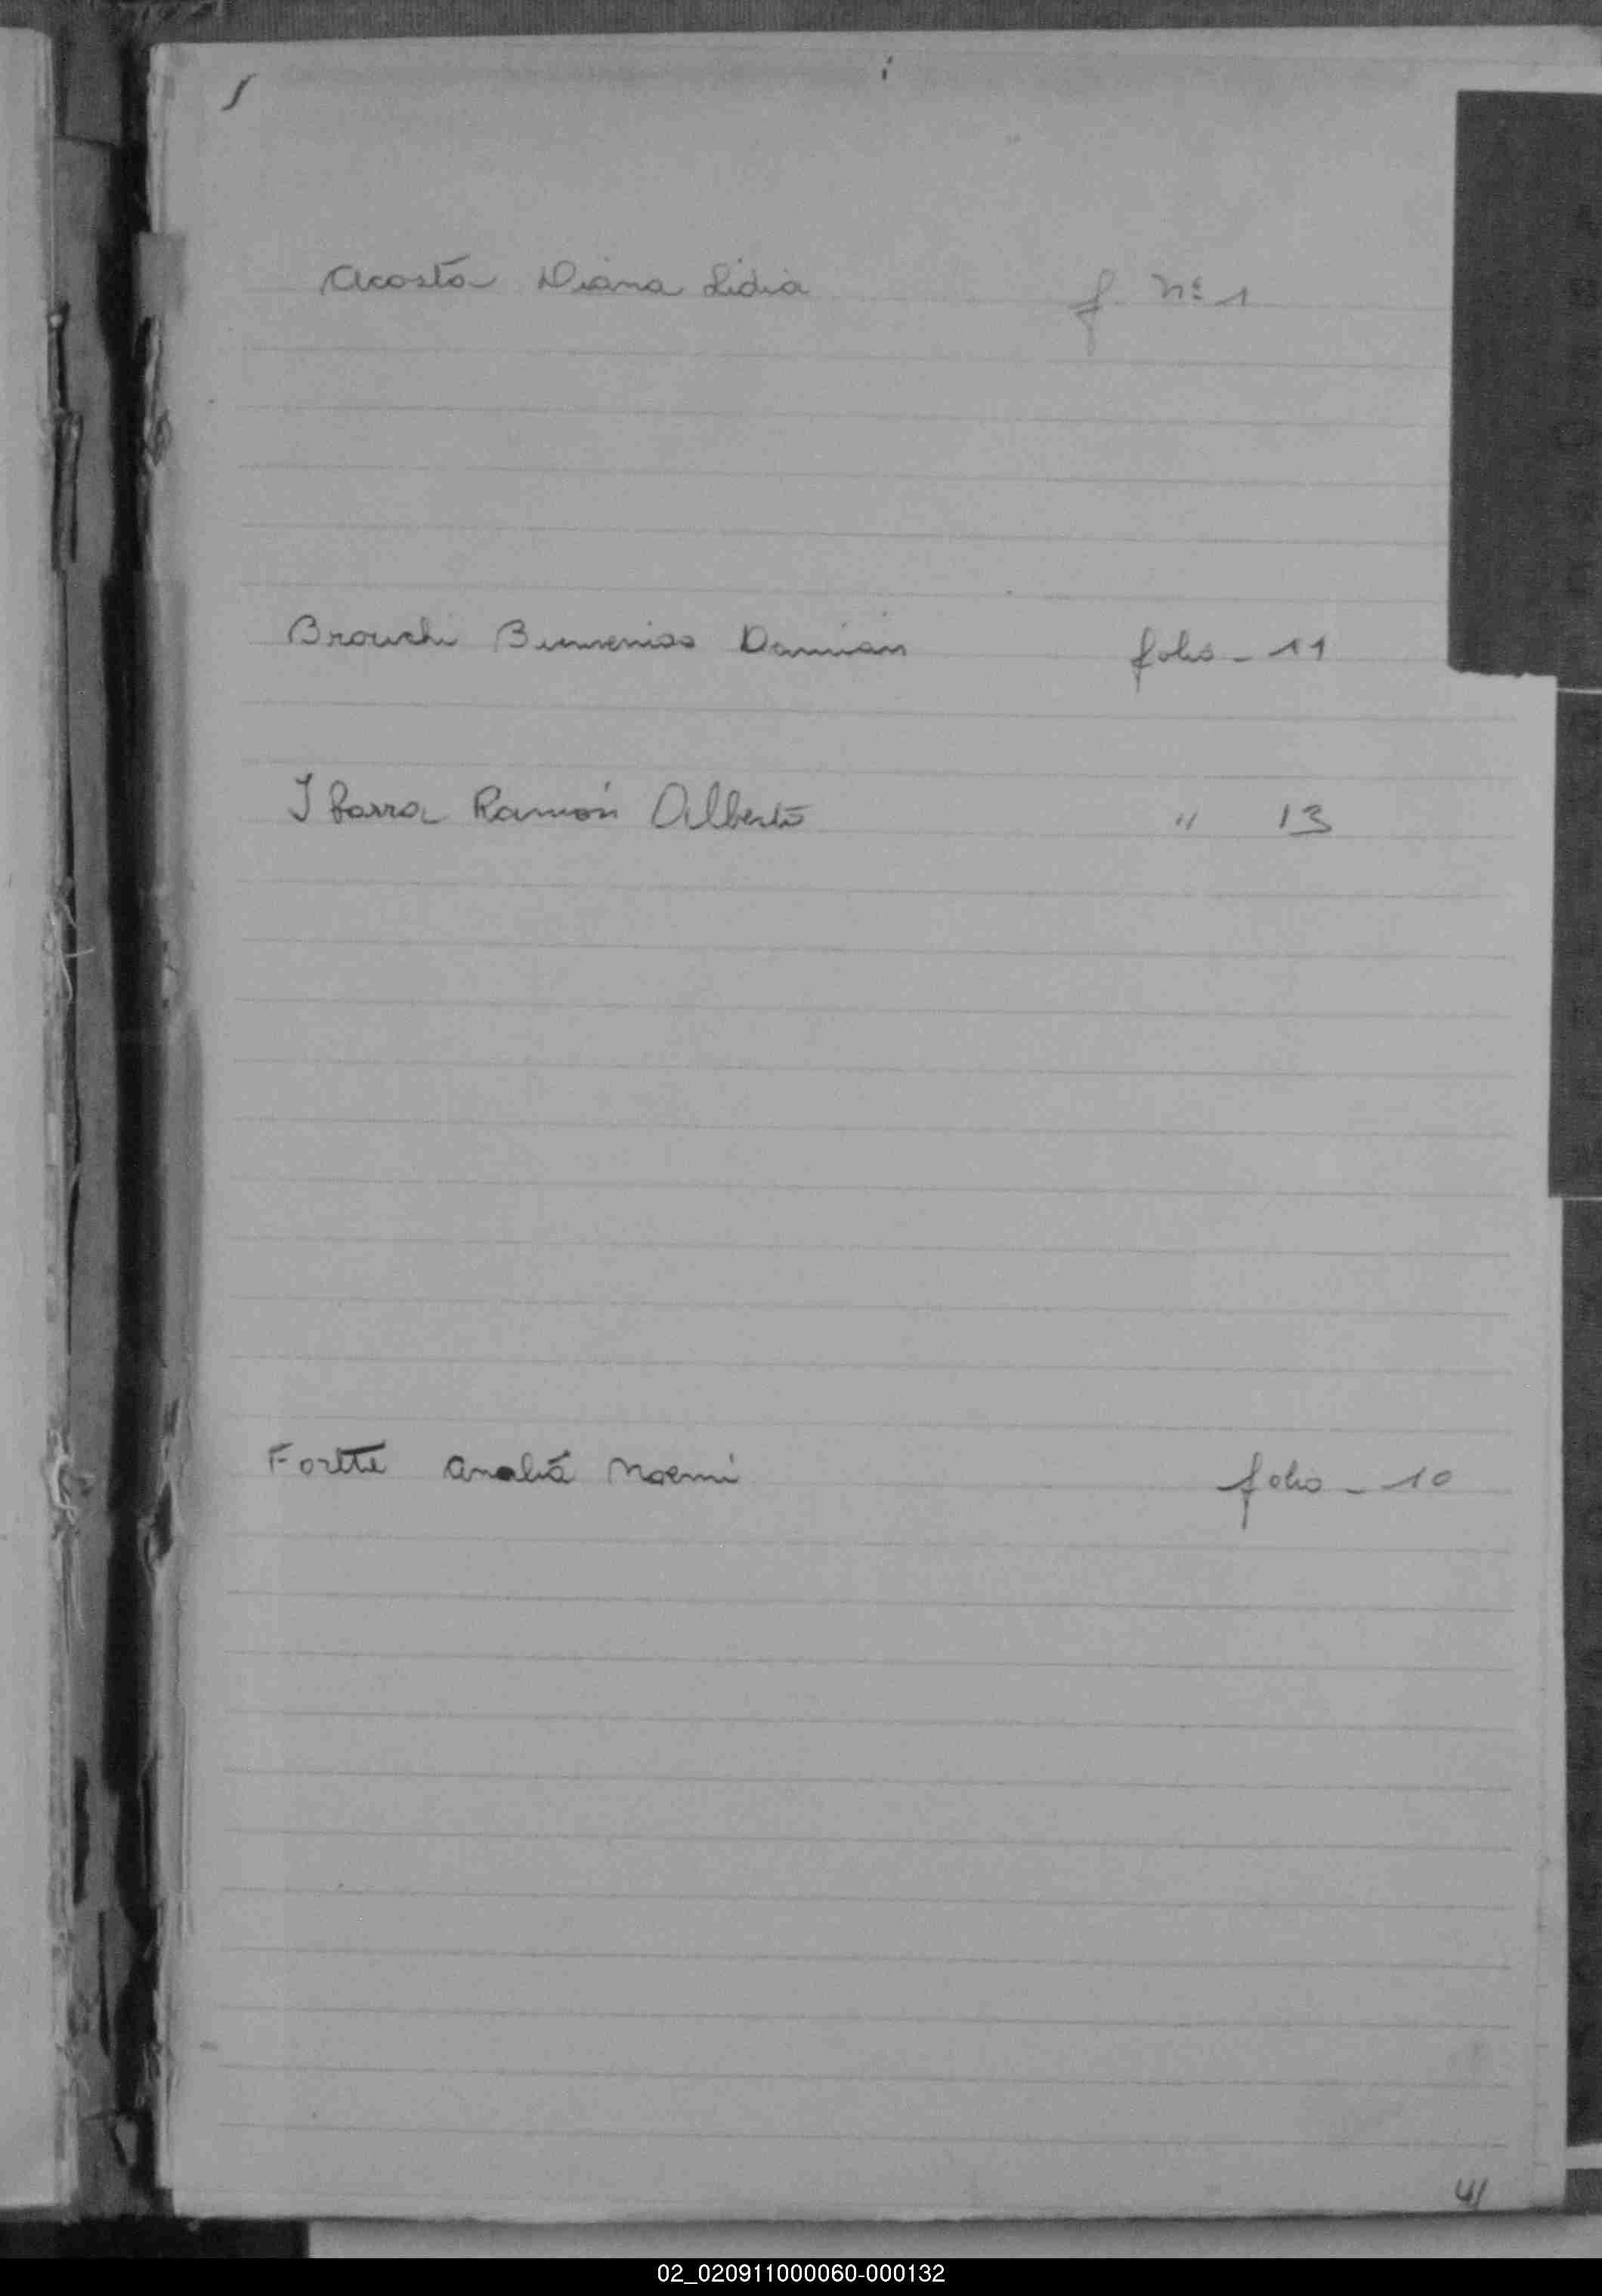 Acosta Diana Lidia f. Nº 1
Damian folio - 11
Ibarra Ramón Alberto " 13
Fortte Analiá Noemi folio - 10
02_020911000060-000132